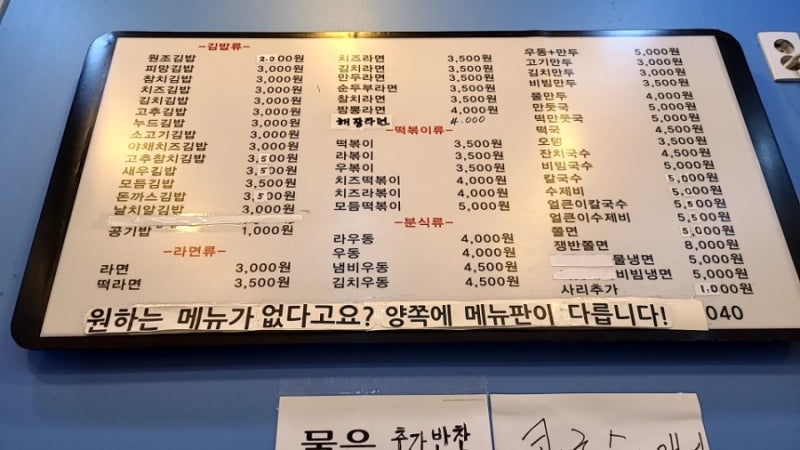 -김밥류-
원조김밥 2,000원
피망김밥 3,000원
참치김밥 3,000원
치즈김밥 3,000원
김치김밥 3,000원
고추김밥 3,000원
누드김밥 3,000원
소고기김밥 3,000원
야채치즈김밥 3,000원
고추참치김밥 3,500원
새우김밥 3,500원
모듬김밥 3,500원
돈까스김밥 3,500원
날치알김밥 3,000원
공기밥 1,000원
-라면류-
라면 3,000원
떡라면 3,500원
치즈라면 3,500원
김치라면 3,500원
만두라면 3,500원
순두부라면 3,500원
참치라면 3,500원
짬뽕라면 4,000원
해장라면 4.000
-떡볶이류-
떡볶이 3,500원
라볶이 3,500원
우볶이 3,500원
치즈떡볶이 4,000원
치즈라볶이 4,000원
모듬떡볶이 5,000원
-분식류-
라우동 4,000원
우동 4,000원
냄비우동 4,500원
김치우동 4,500원
우동+만두 5,000원
고기만두 3,000원
김치만두 3,000원
비빔만두 3,500원
물만두 4,000원
만둣국 5,000원
떡만둣국 5,000원
떡국 4,500원
오뎅 3,500원
잔치국수 4,500원
비빔국수 5,000원
칼국수 5,000원
수제비 5,000원
얼큰이칼국수 5,500원
얼큰이수제비 5,500원
쫄면 5,000원
쟁반쫄면 8,000원
물냉면 5,000원
비빔냉면 5,000원
사리추가 1,000원
원하는 메뉴가 없다고요? 양쪽에 메뉴판이 다릅니다!
040
물은 추가반찬